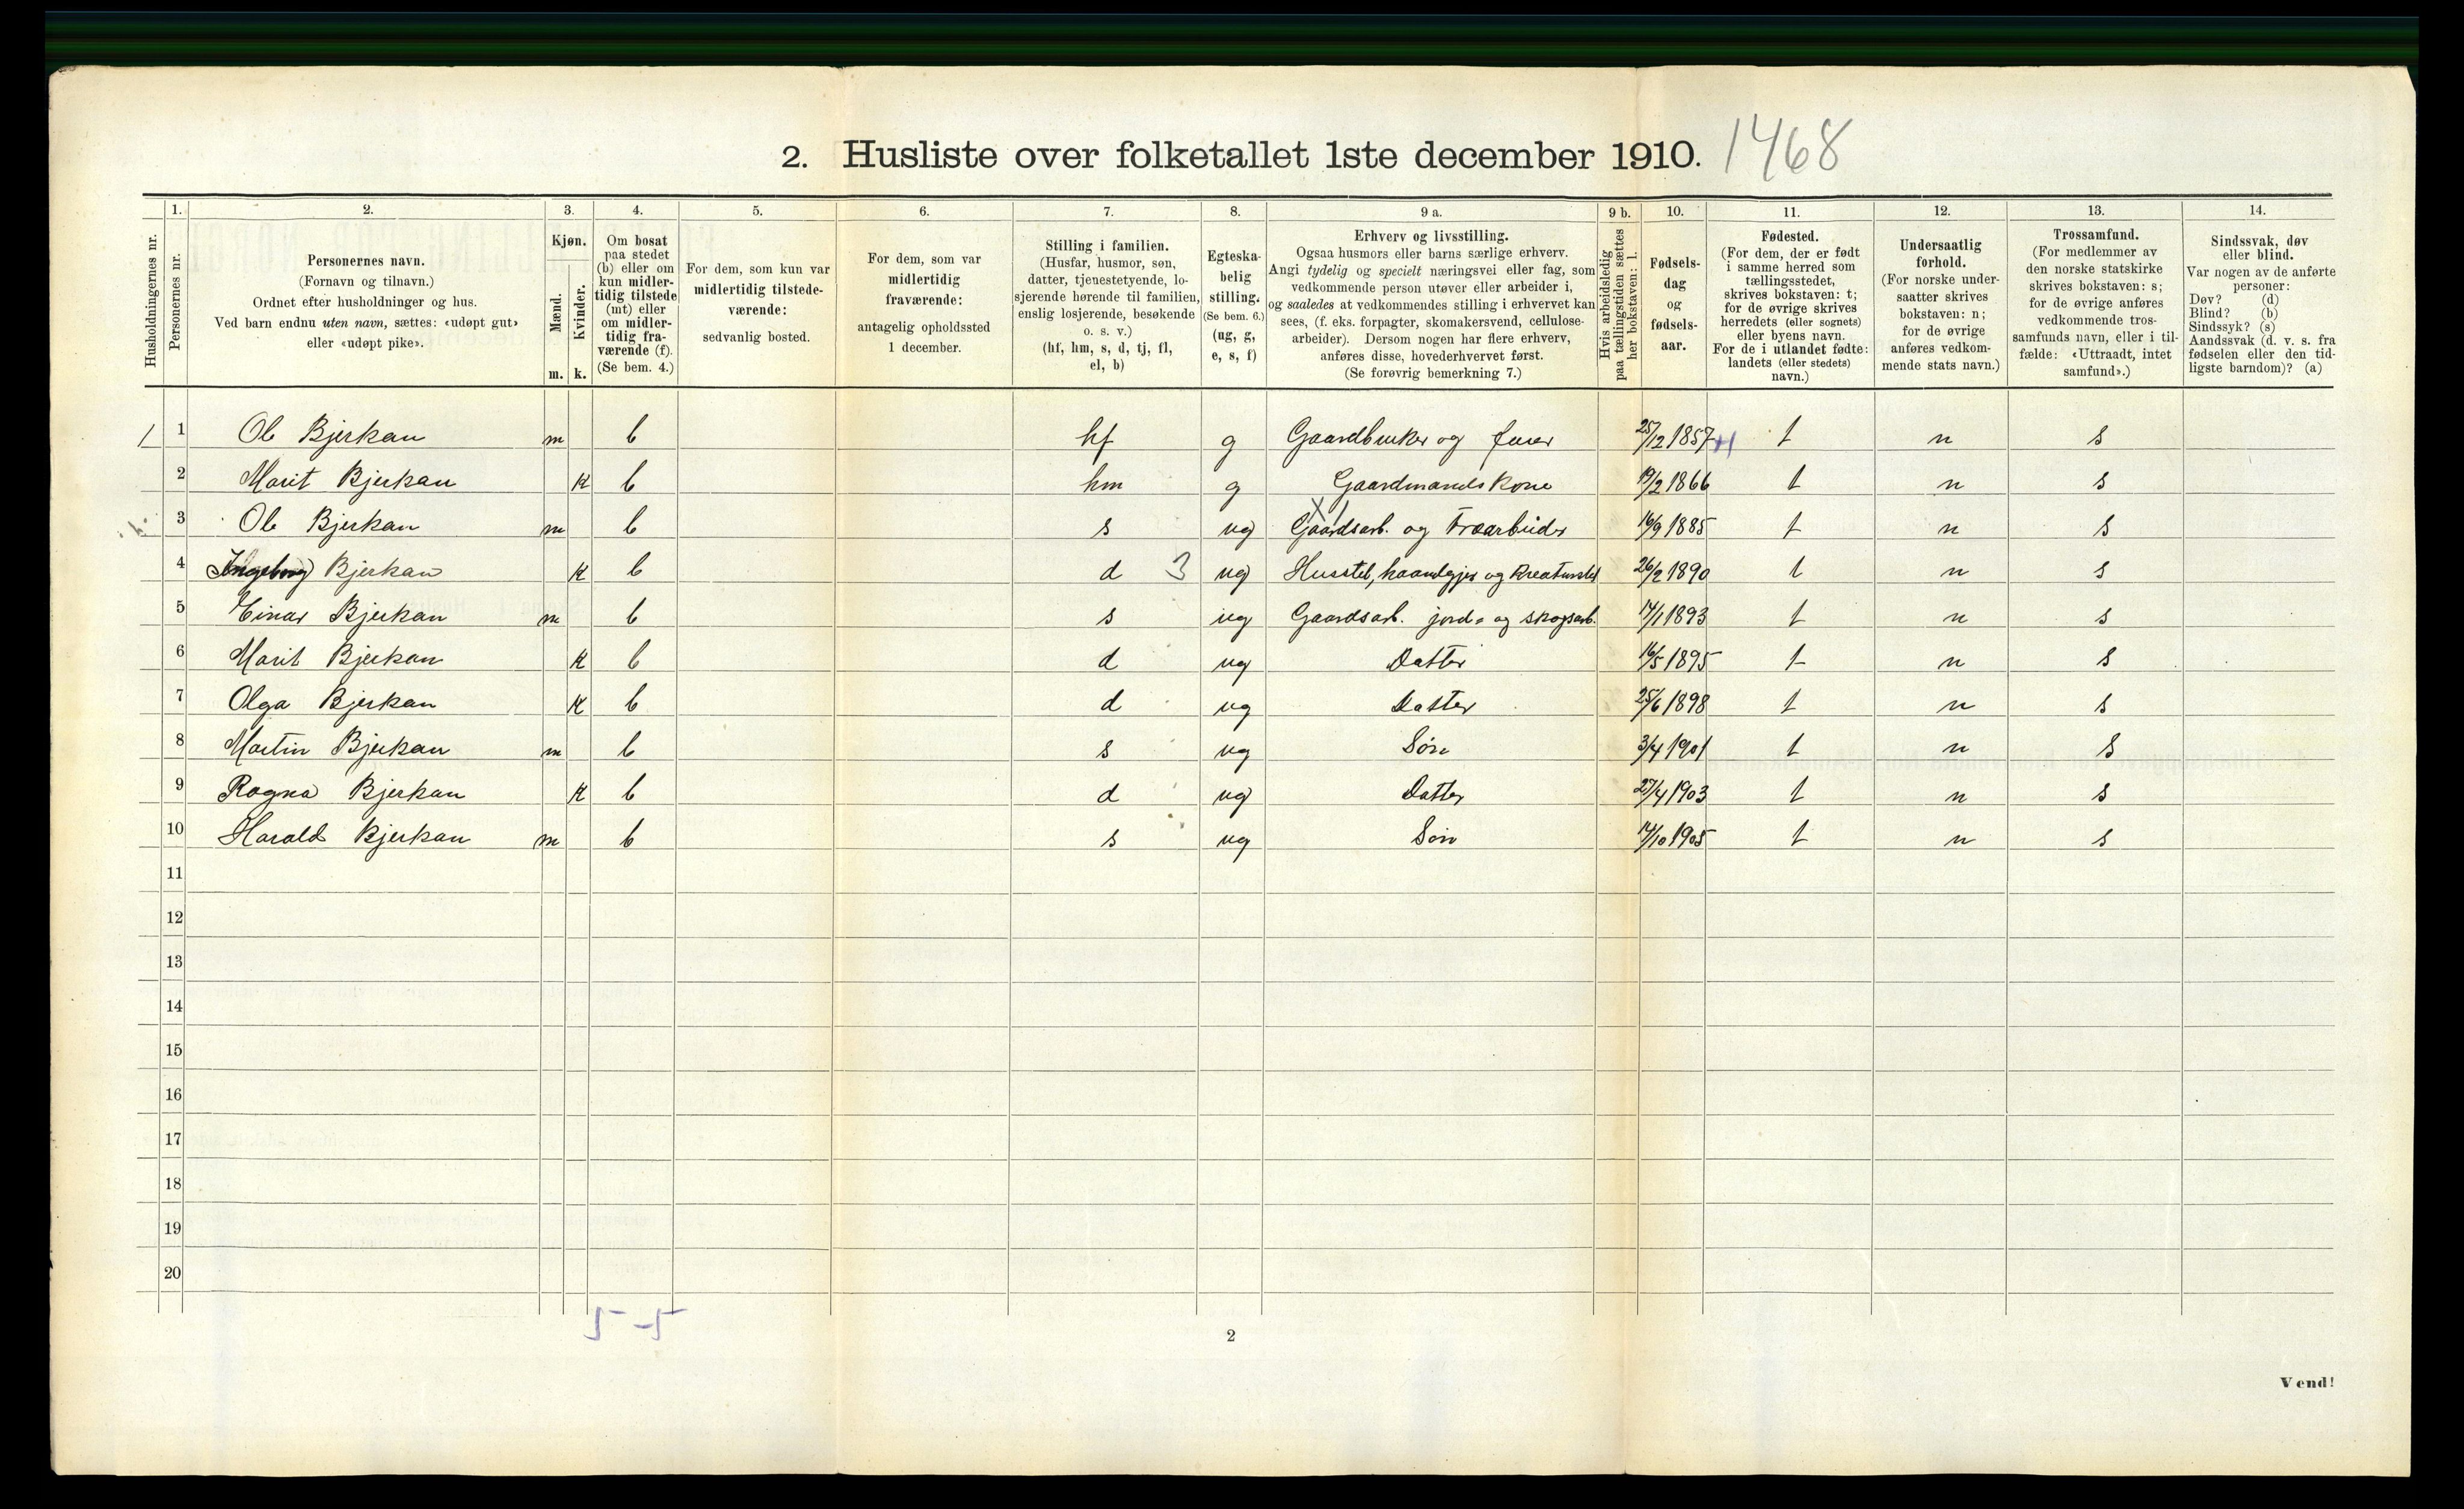 2. Husliste over folketallet 1ste december 1910. 1468
Husholdningernes nr.
1.
Personernes nr.
2.
Personernes navn.
(Fornavn og tilnavn.)
Ordnet efter husholdninger og hus.
Ved barn endnu uten navn, sættes: «udøpt gut»
eller «udøpt pike».
3.
Kjøn.
Mænd.
Kvinder.
m. k.
4.
Om bosat
paa stedet
(b) eller om
kun midler-
tidig tilstede
(mt) eller
om midler-
tidig fra-
værende (f).
(Se bem. 4.)
5.
For dem, som kun var
midlertidig tilstede-
værende:
sedvanlig bosted.
6.
For dem, som var
midlertidig
fraværende:
antagelig opholdssted
1 december.
7.
Stilling i familien.
(Husfar, husmor, søn,
datter, tjenestetyende, lo-
sjerende hørende til familien,
enslig losjerende, besøkende
o. s. v.)
(hf, hm, s, d, tj, fl,
el, b)
8.
Egteska-
belig
stilling.
(Se bem. 6.)
(ug, g,
e, s, f)
9 a.
Erhverv og livsstilling.
Ogsaa husmors eller barns særlige erhverv.
Angi tydelig og specielt næringsvei eller fag, som
vedkommende person utøver eller arbeider i,
og saaledes at vedkommendes stilling i erhvervet kan
sees, (f. eks. forpagter, skomakersvend, cellulose-
arbeider). Dersom nogen har flere erhverv,
anføres disse, hovederhvervet først.
(Se forøvrig bemerkning 7.)
9 b.
Hvis arbeidsledig
paa tællingstiden sættes
her bokstaven: l.
10.
Fødsels-
dag
og
fødsels-
aar.
11.
Fødested.
(For dem, der er født
i samme herred som
tællingsstedet,
skrives bokstaven: t;
for de øvrige skrives
herredets (eller sognets)
eller byens navn.
For de i utlandet fødte:
landets (eller stedets)
navn.)
12.
Undersaatlig
forhold.
(For norske under-
saatter skrives
bokstaven: n;
for de øvrige
anføres vedkom-
mende stats navn.)
13.
Trossamfund.
(For medlemmer av
den norske statskirke
skrives bokstaven: s;
for de øvrige anføres
vedkommende tros-
samfunds navn, eller i til-
fælde: «Uttraadt, intet
samfund».)
14.
Sindssvak, døv
eller blind.
Var nogen av de anførte
personer:
Døv? (d)
Blind? (b)
Sindssyk? (s)
Aandssvak (d. v. s. fra
fødselen eller den tid-
ligste barndom)? (a)
1 1 Ole Bjerkan m b hf g Gaardbruker og 25/12 1857 t n s
2 Marit Bjerkan k b hm g Gaardmandskone 19/2 1866 t n s
3 Ole Bjerkan m b s ug Gaardsarb. og Træarbeider 16/9 1885 t n s
4 Ingeborg Bjerkan k b d 3 ug Husstel, haandgjer og Kreaturstel 26/2 1890 t n s
5 Einar Bjerkan m b s ug Gaardsarb. jord- og skogsarb. 14/1 1893 t n s
6 Marit Bjerkan k b d ug Datter 16/5 1895 t n s
7 Olga Bjerkan k b d ug Datter 25/6 1898 t n s
8 Martin Bjerkan m b s ug Søn 3/4 1901 t n s
9 Ragna Bjerkan k b d ug Datter 27/4 1903 t n s
10 Harald Bjerkan m b s ug Søn 14/10 1905 t n s
11
12
13
14
15
16
17
18
19
20
5 - 5
2
Vend!